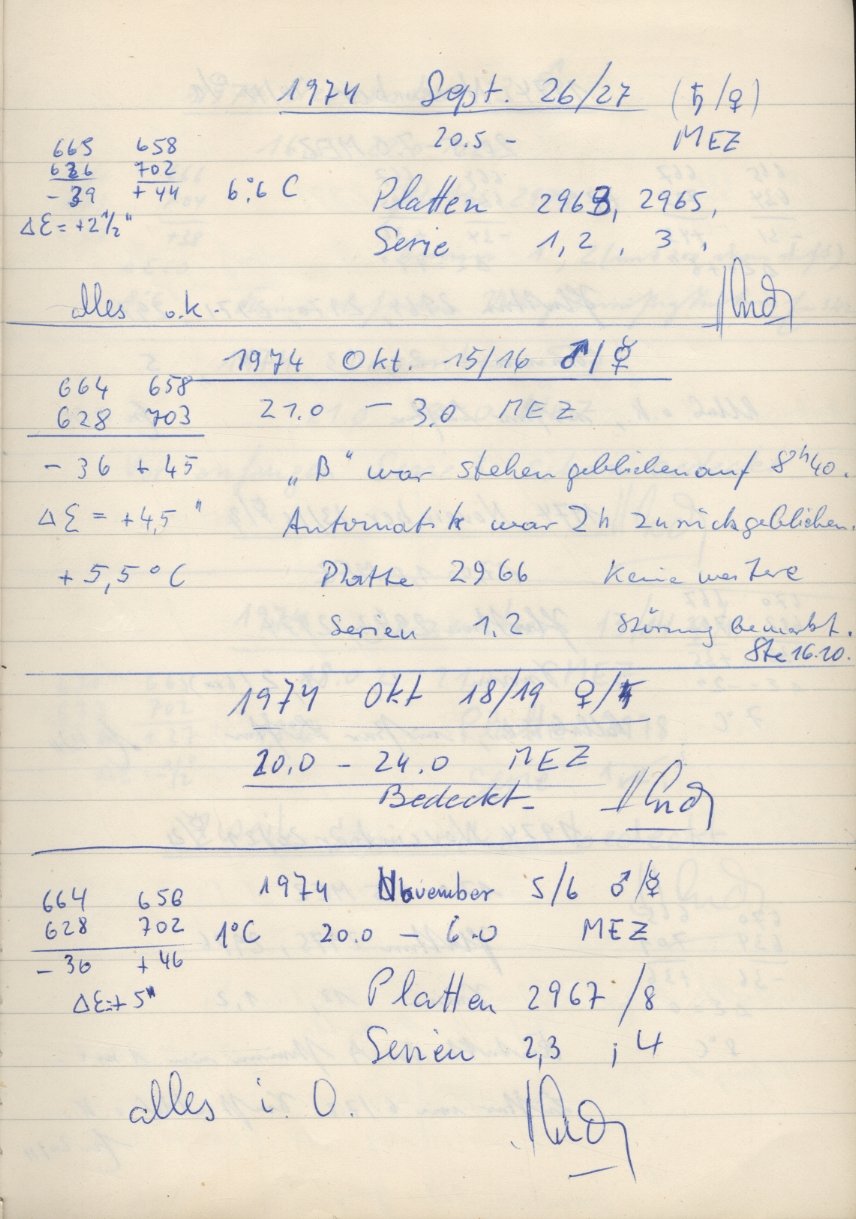 1974 Sept. 26/27 (♄/♀)
20.5 - MEZ
665 658
636 702
- 39 + 44 6°.6 C
Platten 2963, 2965,
ΔƐ = +2 1/2"
Serie 1, 2 , 3 ,
alles o.k.
1974 Okt. 15/16 ♂/☿
664 658
628 703
21.0 — 3.0 MEZ
- 36 + 45
„B" war stehen geblieben auf 8h40.
ΔƐ = +4,5"
Automatik war 2h zurückgeblieben.
+ 5,5°C
Platte 2966 Keine weitere
Serien 1.2 Störung bemerkt.
Ste 16.10.
1974 Okt 18/19 ♀/♄
20.0 — 24.0 MEZ
Bedeckt
1974 November 5/6 ♂/☿
664 656
628 702
1°C 20.0 — 6.0 MEZ
- 36 + 46
ΔƐ=+ 5"
Platten 2967 /8
Serien 2,3 ; 4
alles i. O.